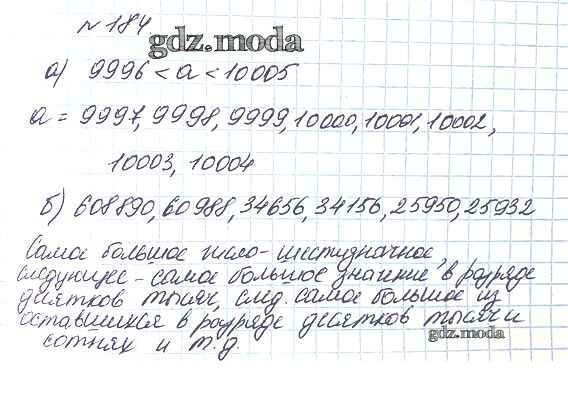 № 184
gdz.moda
а) 9996 < a < 10005
a = 9997, 9998, 9999, 10000, 10001, 10002,
10003, 10004
б) 608890, 60988, 34656, 34156, 25950, 25932
Самое большое число - шестизначное,
следующее - самое большое значение в разряде
десятков тысяч, след. самое большое из
оставшихся в разряде десятков тысяч и
сотнях и т.д.
gdz.moda